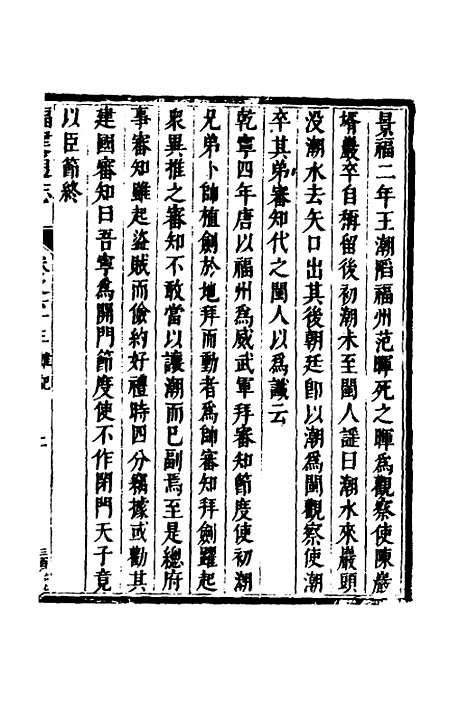 景福二年王潮䧟福州范暉死之暉爲觀察使陳巖
壻巖卒自稱留後初潮未至閩人謡曰潮水來巖頭
没潮水去矢口出其後朝廷卽以潮爲閩觀察使潮
卒其弟審知代之閩人以爲䜟云
乾寧四年唐以福州爲威武軍拜審知節度使初潮
兄弟卜帥植劍於地拜而動者爲帥審知拜劍躍起
衆異推之審知不敢當以讓潮而已副焉至是總府
事審知雖起盗賊而儉約好禮時四分竊據或勸其
建國審知曰吾寧爲開門節度使不作閉門天子竟
以臣節終
福建通志
雜記